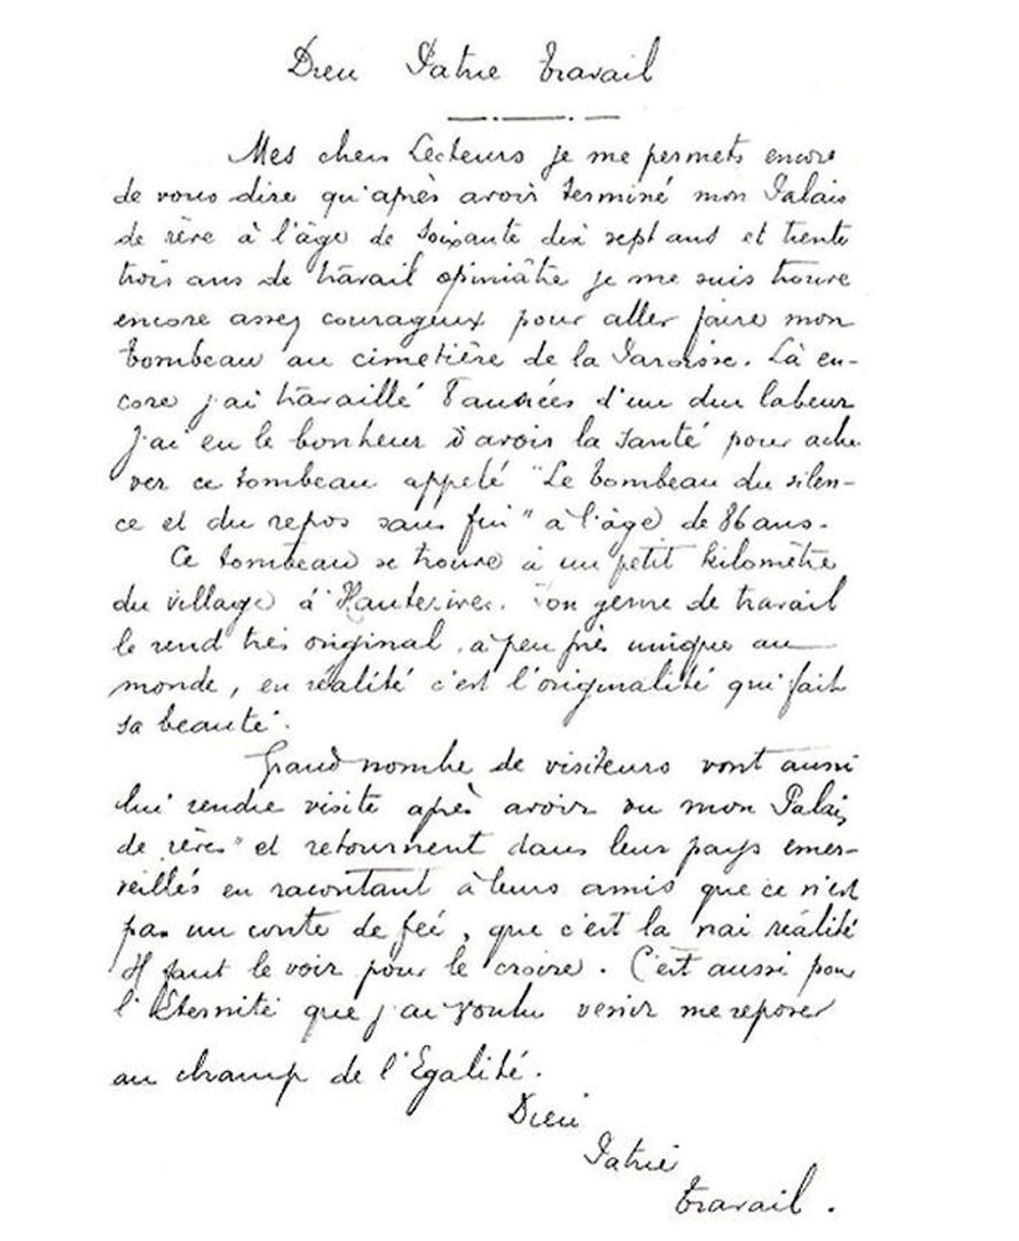 Dieu Patrie Travail
Mes chers Lecteurs je me permets encore
de vous dire qu'après avoir terminé mon Palais
de rêve à l'âge de soixante dix sept ans et trente
trois ans de travail opiniâtre je me suis trouvé
encore assez courageux pour aller faire mon
tombeau au cimetière de la Paroisse. Là en-
core j'ai travaillé 8 années d'un dur labeur
J'ai eu le bonheur d'avoir la santé pour ache
ver ce tombeau appelé "Le tombeau du silen-
ce et du repos sans fin" à l'âge de 86 ans.
Ce tombeau se trouve à un petit kilomètre
du village à Hauterives. Son genre de travail
le rend très original, à peu près unique au
monde, en réalité c'est l'originalité qui fait
sa beauté.
Grand nombre de visiteurs vont aussi
lui rendre visite après avoir vu mon Palais
de rêves" et retournent dans leur pays émer-
veillés en racontant à leurs amis que ce n'est
pas un conte de feé, que c'est la vrai réalité
Il faut le voir pour le croire. C'est aussi pour
l'Eternité que j'ai voulu venir me reposer
au champ de l'Egalité.
Dieu
Patrie
Travail.